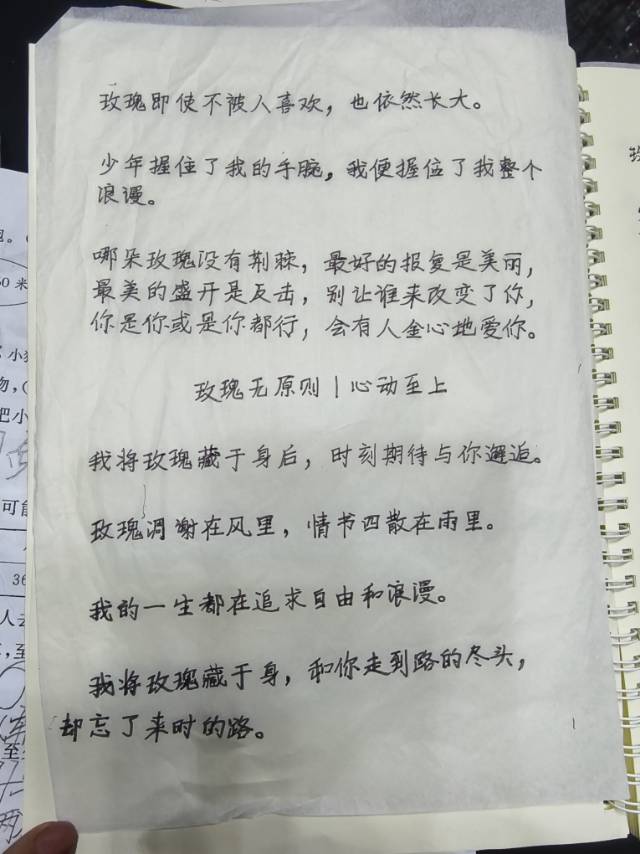 玫瑰即使不被人喜欢，也依然长大。
少年握住了我的手腕，我便握住了我整个
浪漫。
哪朵玫瑰没有荆棘，最好的报复是美丽，
最美的盛开是反击，别让谁来改变了你，
你是你或是你都行，会有人全心地爱你。
玫瑰无原则|心动至上
我将玫瑰藏于身后，时刻期待与你邂逅。
玫瑰凋谢在风里，情书四散在雨里。
我的一生都在追求自由和浪漫。
我将玫瑰藏于身，和你走到路的尽头，
却忘了来时的路。
50米
小猴
物，(
把小
可能
36
人去
，至
至
两